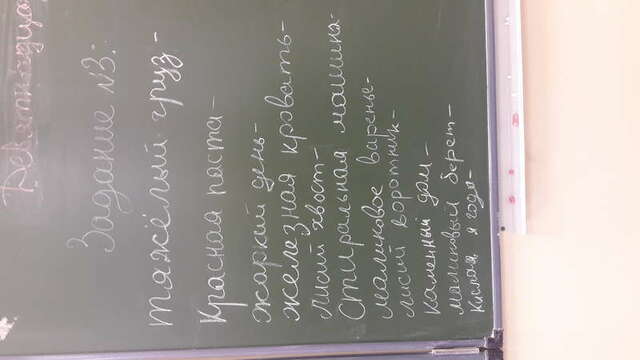 Задание №3:
тяжёлый груз -
Красная паста -
жаркий день -
железная кровать -
лисий хвост -
стиральная машина -
малиновое варенье -
лисий воротник -
каменный дом -
малиновый берет -
кислая ягода -